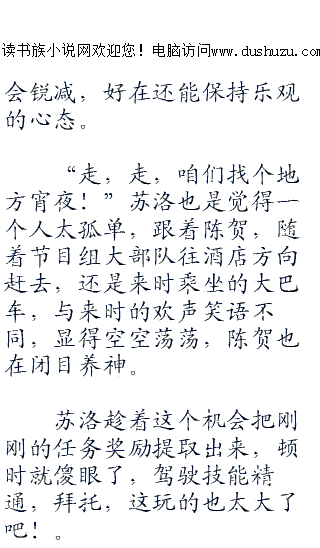 读书族小说网欢迎您！电脑访问www.dushuzu.com
会锐减，好在还能保持乐观
的心态。
“走，走，咱们找个地
方宵夜！”苏洛也是觉得一
个人太孤单，跟着陈贺，随
着节目组大部队往酒店方向
赶去，还是来时乘坐的大巴
车，与来时的欢声笑语不
同，显得空空荡荡，陈贺也
在闭目养神。
苏洛趁着这个机会把刚
刚的任务奖励提取出来，顿
时就傻眼了，驾驶技能精
通，拜托，这玩的也太大了
吧！。